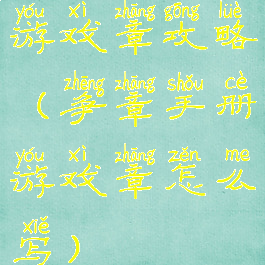 yóu xì zhāng gōng lüè
游戏章攻略
zhēng zhāng shǒu cè
（争章手册
yóu xì zhāng zěn me
游戏章怎么
xiě
写）